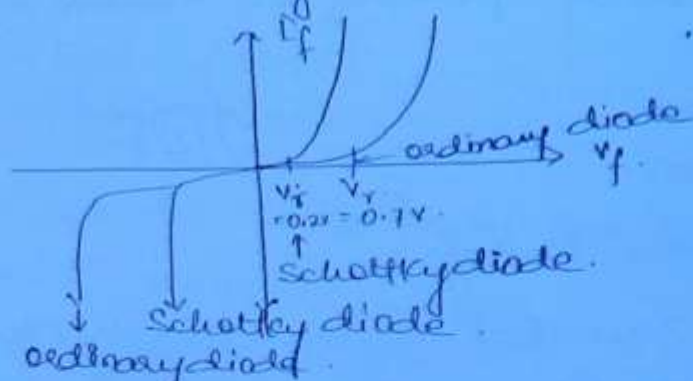 I_f
ordinary diode
V_f
V_r V_r
= 0.2v = 0.7 V.
↑
Schottky diode.
Schottky diode.
ordinary diode.